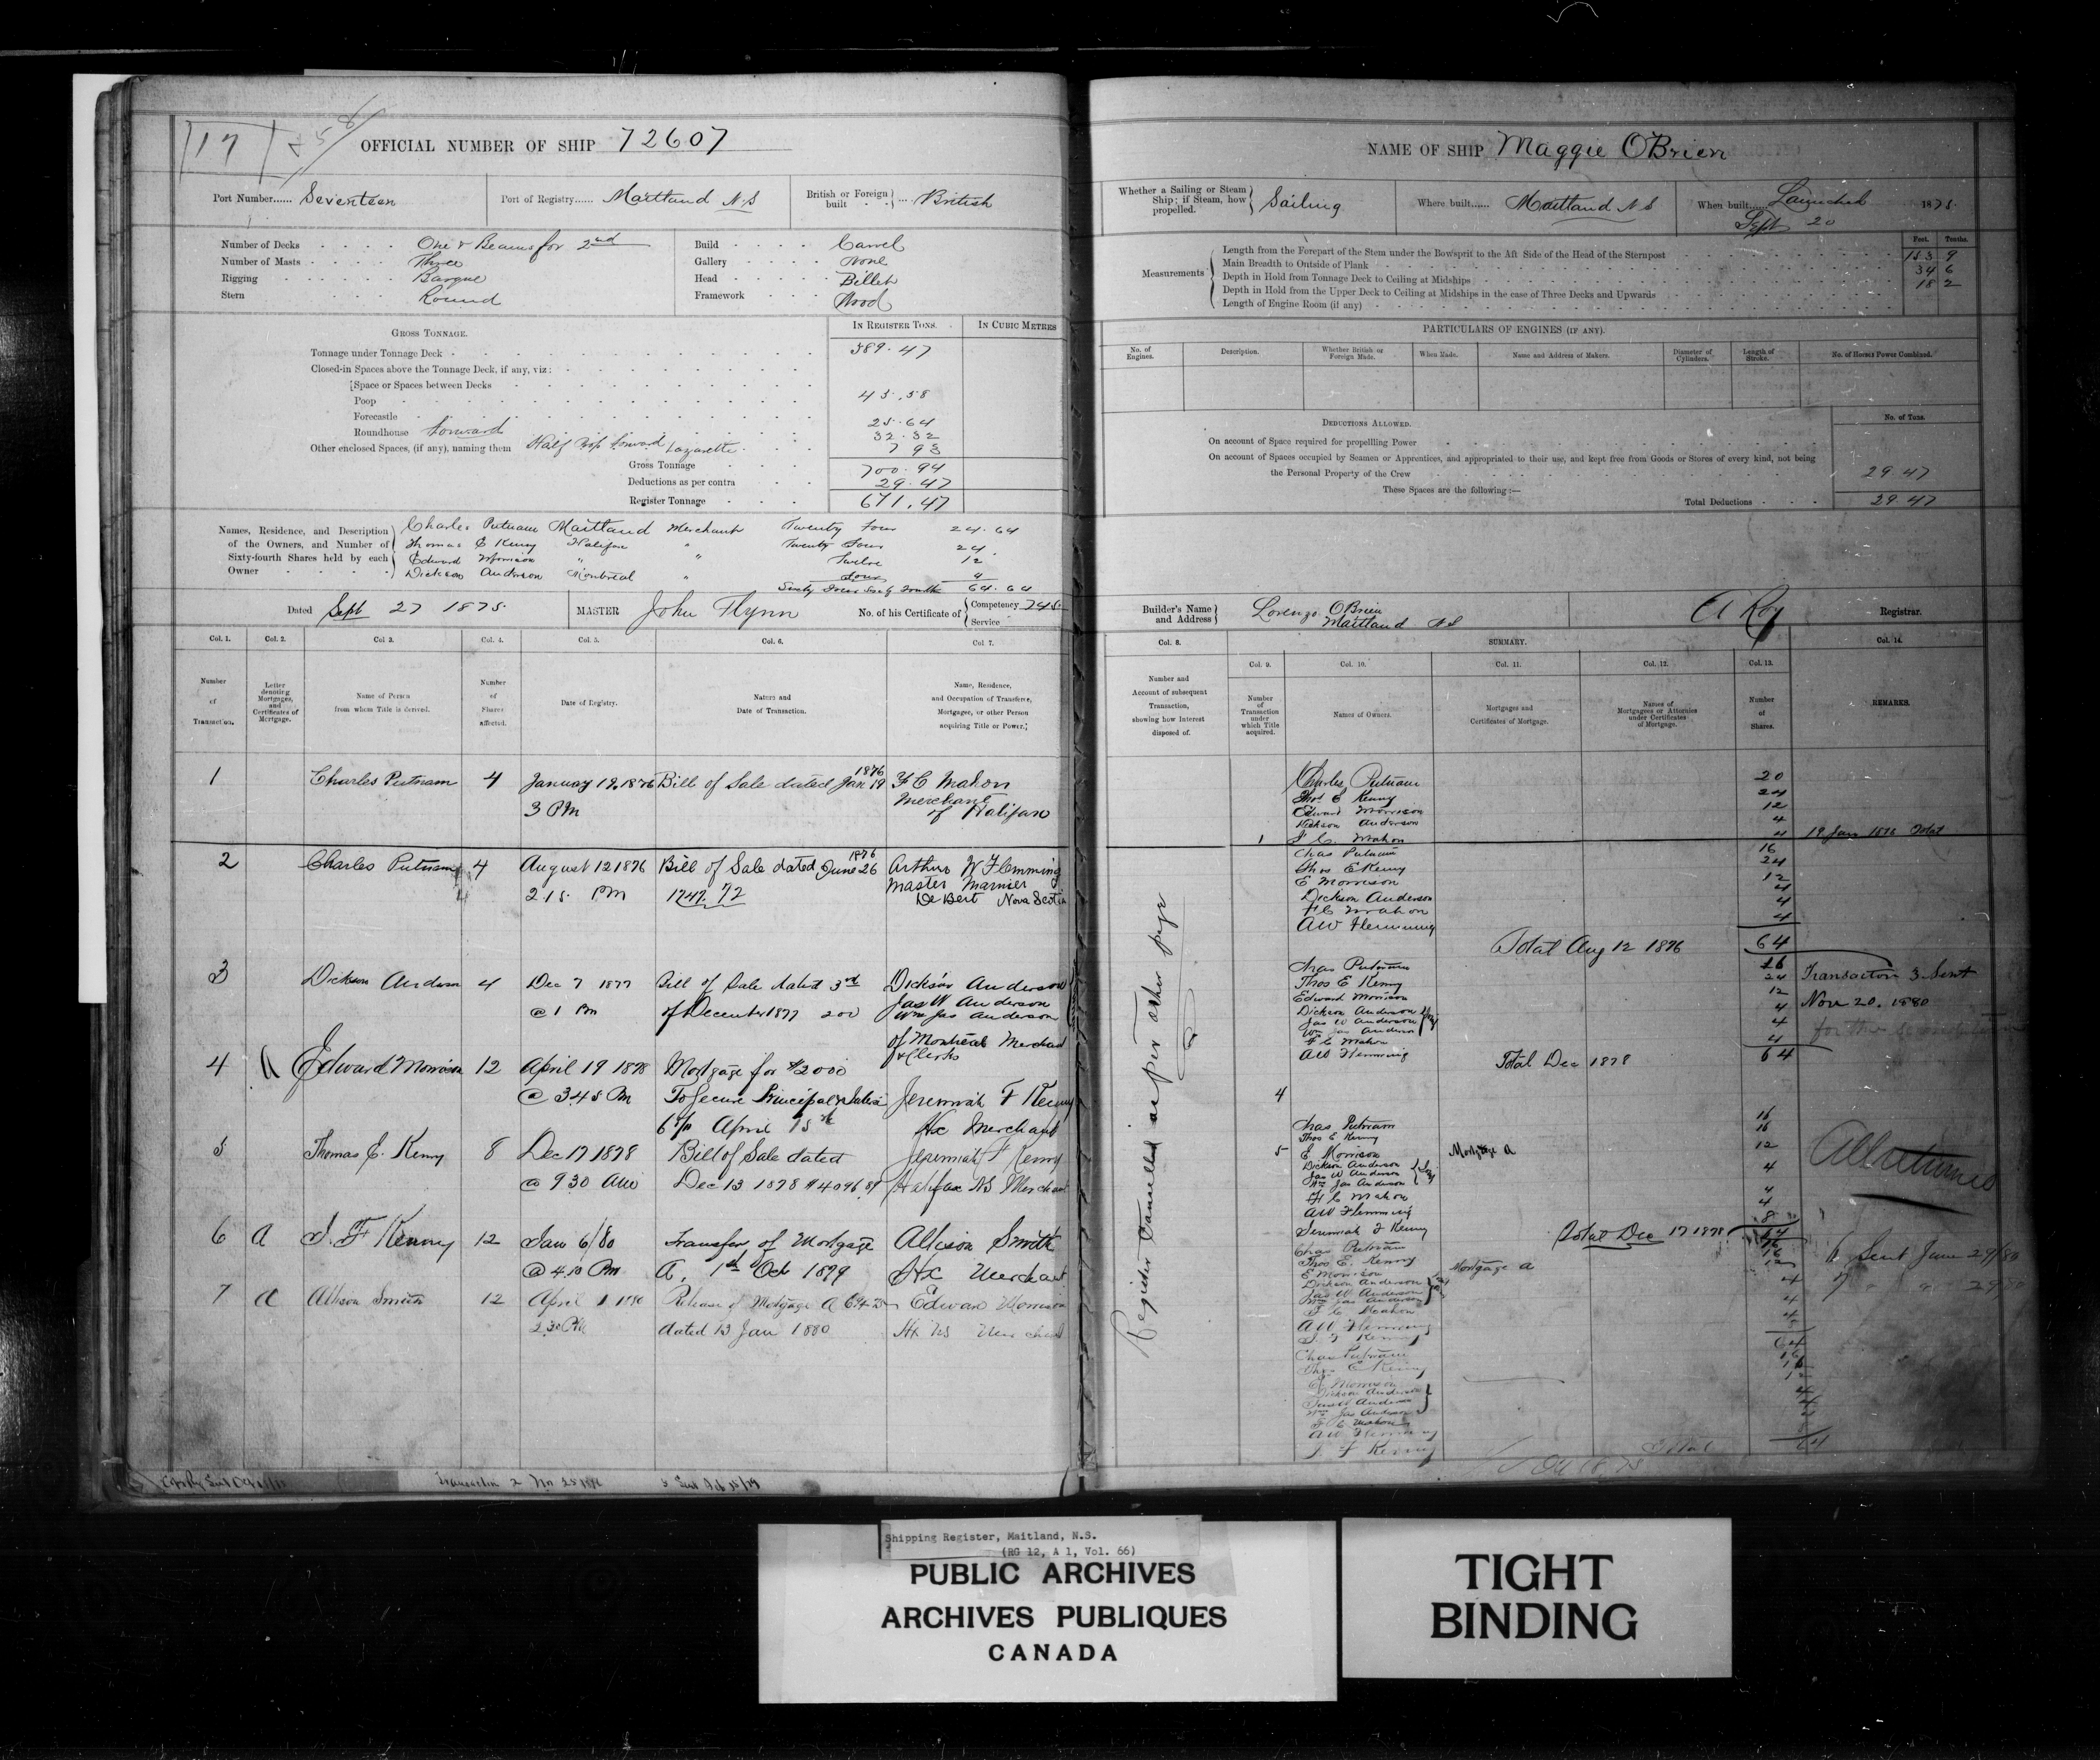 17
258
OFFICIAL NUMBER OF SHIP 72607
Port Number...... Seventeen
Port of Registry...... Maitland N.S
British or Foreign built ... British
Number of Decks One & Beams for 2nd
Number of Masts Three
Rigging Barque
Stern Round
Build Carvel
Gallery None
Head Billet
Framework Wood
GROSS TONNAGE.
IN REGISTER TONS.
IN CUBIC METRES
Tonnage under Tonnage Deck 589.47
Closed-in Spaces above the Tonnage Deck, if any, viz:
Space or Spaces between Decks
Poop 45.58
Forecastle
Roundhouse forward 25.64
Other enclosed Spaces, (if any), naming them Half forward 32.32
Lazarette 7 93
Gross Tonnage 700.94
Deductions as per contra 29.47
Register Tonnage 671.47
Names, Residence, and Description of the Owners, and Number of Sixty-fourth Shares held by each Owner
Charles Putnam Maitland Merchant Twenty four 24.64
Thomas E Kenny Halifax " Twenty Four 24.
Edward Morrison " " Twelve 12
Dickson Anderson Montreal " Four 4
Sixty Four Sixty Fourths 64.64
Dated Sept 27 1875.
MASTER John Flynn
No. of his Certificate of Competency 745
Service
Col. 1. Col. 2. Col 3. Col. 4. Col. 5. Col. 6. Col 7.
Number of Transaction.
Letter denoting Mortgages, and Certificates of Mortgage.
Name of Person from whom Title is derived.
Number of Shares affected.
Date of Registry.
Nature and Date of Transaction.
Name, Residence, and Occupation of Transferee, Mortgagee, or other Person acquiring Title or Power.
1 Charles Putnam 4 January 19, 1876 Bill of Sale dated Jan 19 1876 F C Mahon
3 PM Merchant
of Halifax
2 Charles Putnam 4 August 12 1876 Bill of Sale dated June 26 1876 Arthur W Flemming
2.15. PM 1747.72 Master Marnier
De Bert Nova Scotia
3 Dickson Anderson 4 Dec 7 1877 Bill of Sale dated 3rd Dickson Anderson
@ 1 Pm of December 1877 200 Jas W Anderson
Wm Jas Anderson
of Montreal Merchant
& Clerks
4 A Edward Morrison 12 April 19 1878 Mortgage for $2000
@ 345 Pm To Secure Principal & Interest Jeremiah F Kenny
6% April 15th Hx Merchant
5 Thomas E. Kenny 8 Dec 17 1878 Bill of Sale dated Jeremiah F Kenny
@ 930 AM Dec 13 1878 $4096.87 Halifax NS Merchant
6 A J. F Kenny 12 Jan 6/80 Transfer of Mortgage Allison Smith
@ 4.10 Pm A, 1st Oct 1879 Hx Merchant
7 A Allison Smith 12 April 1 1880 Release of Mortgage A Edward Morrison
2.30 PM dated 13 Jan 1880 Hx NS Merchant
Transaction 2
NAME OF SHIP Maggie OBrien
Whether a Sailing or Steam Ship; if Steam, how propelled. Sailing
Where built...... Maitland N S
When built...... Launched Sept 20 1875.
Measurements
Feet. Tenths.
Length from the Forepart of the Stem under the Bowsprit to the Aft Side of the Head of the Sternpost 153 9
Main Breadth to Outside of Plank 34 6
Depth in Hold from Tonnage Deck to Ceiling at Midships 18 2
Depth in Hold from the Upper Deck to Ceiling at Midships in the case of Three Decks and Upwards
Length of Engine Room (if any)
PARTICULARS OF ENGINES (IF ANY).
No. of Engines.
Description.
Whether British or Foreign Made.
When Made.
Name and Address of Makers.
Diameter of Cylinders.
Length of Stroke.
No. of Horses Power Combined.
DEDUCTIONS ALLOWED.
No. of Tons.
On account of Space required for propelling Power
On account of Spaces occupied by Seamen or Apprentices, and appropriated to their use, and kept free from Goods or Stores of every kind, not being
the Personal Property of the Crew 29 47
These Spaces are the following:—
Total Deductions 29.47
Builder's Name and Address Lorenzo OBrien
Maitland N S
A Roy Registrar.
Col. 8.
SUMMARY.
Col. 14.
Col. 9. Col. 10. Col. 11. Col. 12. Col. 13.
Number and Account of subsequent Transaction, showing how Interest disposed of.
Number of Transaction under which Title acquired.
Names of Owners.
Mortgages and Certificates of Mortgage.
Names of Mortgagees or Attornies under Certificates of Mortgage.
Number of Shares.
REMARKS.
Register Cancelled as per other page
Charles Putnam 20
Thos E Kenny 24
Edward Morrison 12
Dickson Anderson 4
1 F C. Mahon 4 19 Jan 1876 Total
Chas Putnam 16
Thos E Kenny 24
E Morrison 12
Dickson Anderson 4
F C Mahon 4
AW Flemming 4
Total Aug 12 1876 64
Chas Putnam 16
Thos E Kenny 24
Edward Morrison 12
Dickson Anderson 4
Jas W Anderson
Wm Jas Anderson
F C Mahon 4
AW Flemming 4
Total Dec 1878 64
Transaction 3 Sent
Nov 20. 1880
4
Chas Putnam 16
Thos E Kenny 16
5 E Morrison Mortgage A 12
Dickson Anderson 4
Jas W Anderson
Wm Jas Anderson
F C Mahon 4
AW Flemming 4
Jeremiah F Kenny 8
Total Dec 17 1878 64
All returned
Chas Putnam 16
Thos E. Kenny 16
E Morrison Mortgage A 12
Dickson Anderson 4
Jas W Anderson
Wm Jas Anderson
F C Mahon 4
AW Flemming 4
J. F Kenny
64
6 Sent June 29/80
7 " 29
Chas Putnam 16
Thos E Kenny 16
E Morrison 12
Dickson Anderson 4
Jas W Anderson
Wm Jas Anderson
F C Mahon 4
AW Flemming
J. F Kenny
Total 64
Shipping Register, Maitland, N.S.
(RG 12, A 1, Vol. 66)
PUBLIC ARCHIVES
ARCHIVES PUBLIQUES
CANADA
TIGHT
BINDING